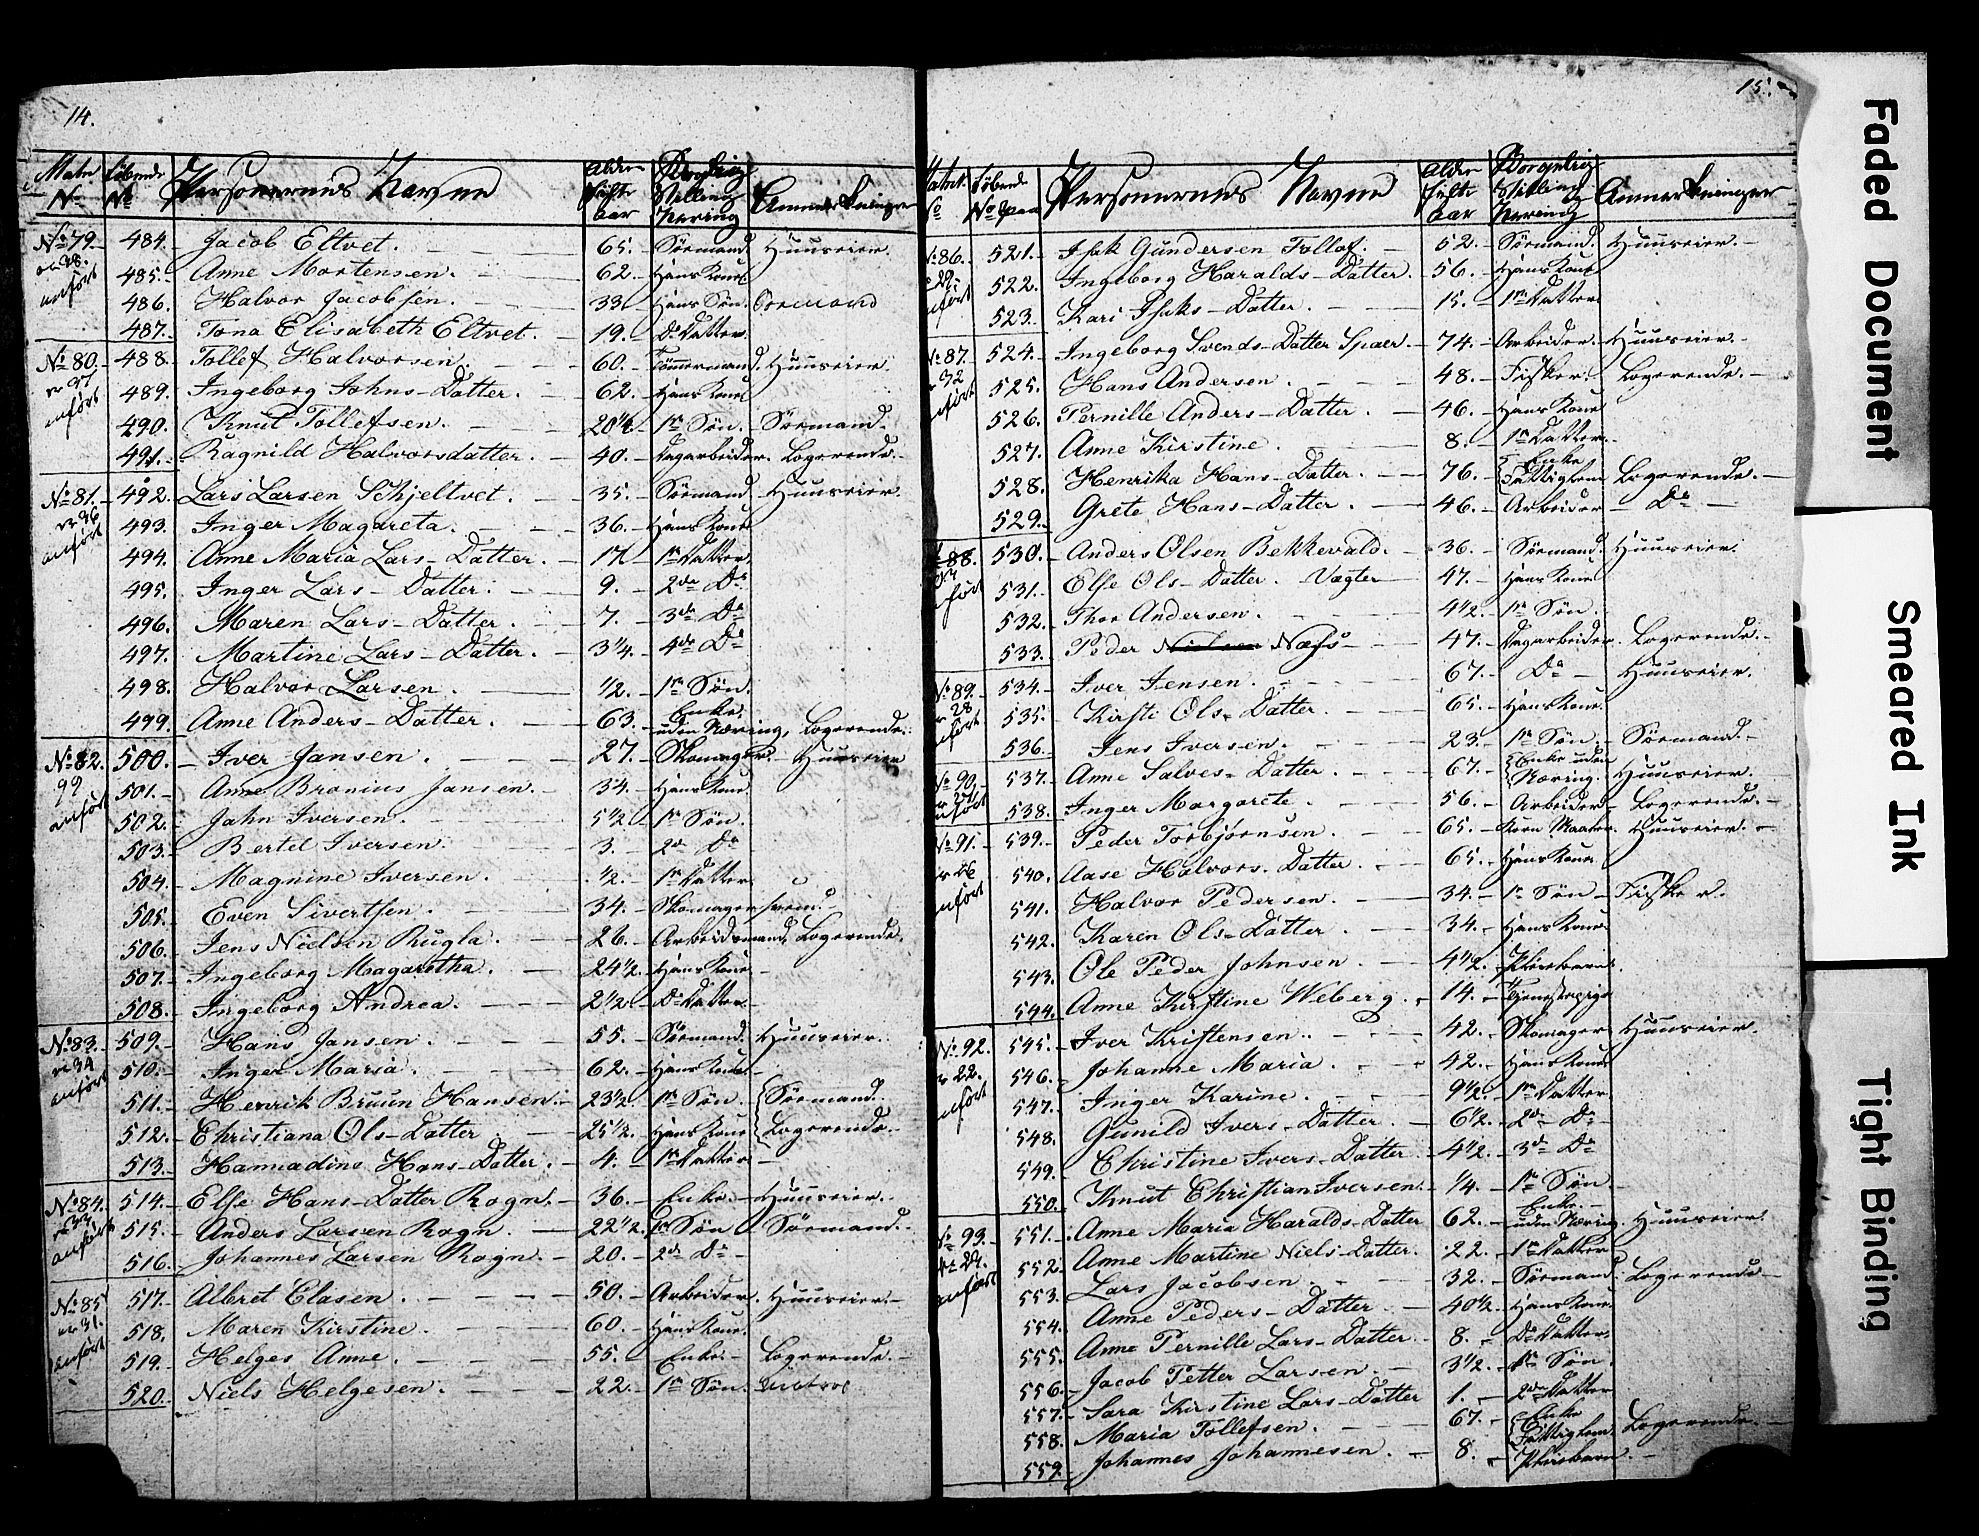 14.
Matr № Løbende № Personernes Navne Alder Fulte Aar Borgerlig Stilling Næring Anmerkninger
№ 79. 484. Jacob Eltvet. 65. Sørmand. Huuseier.
485. Anne Mortensen. 62. Hans Kone
anført 486. Halvor Jacobsen. 33. Hans Søn.
487. Tona Elisabeth Eltvet. 19. Do Datter
№ 80. 488. Tollef Halvorsen. 60. Tømermand. Huuseier
489. Ingeborg Johns-Datter. 62. Hans Kone
anført 490. Knut Tollefsen. 20 1/2 1ste Søn. Sørmand.
491. Ragnild Halvorsdatter. 40. Dagarbeider. Logerende.
№ 81. 492. Lars Larsen Schjeltvet. 35. Sørmand Huuseier.
no 36 493. Inger Magareta. 36. Hans Kone
anført 494. Anne Maria Lars-Datter. 1ste Datter
495. Inger Lars-Datter. 9. 2den Do
496. Maren Lars-Datter. 7. 3de Do
497. Martine Lars-Datter. 3 1/4. 4de Do
498. Halvor Larsen. 1/2. 1ste Søn.
499. Anne Anders-Datter. 63. Enke uden Næring, Logerende.
№ 82. 500. Iver Jansen. 27. Skomager. Huuseier
501. Anne Bronius Jansen. 34. Hans Kone
anført 502. Jahn Iversen. 5 1/2. 1ste Søn.
503. Bertel Iversen. 3. 2den Do
504. Magnine Iversen. 1/2. 1ste Datter
505. Even Sivertsen. 34. Skomagersvend.
506. Jens Nielsen Rugla. 26. Arbeidsmand, Logerende.
507. Ingeborg Magaretha. 24 1/2. Hans Kone
508. Ingeborg Andrea. 2 1/2. Do Datter
№ 83. 509. Hans Jansen. 55. Sørmand. Huuseier.
no 34 510. Inger Maria. 62. Hans Kone
anført 511. Henrik Bruun Hansen. 23 1/2. 1ste Søn. Sørmand.
512. Christiana Ols-Datter 25 1/2. Hans Kone Logerende.
513. Hannadine Hans-Datter. 4. 1ste Datter
№ 84. 514. Else Hans-Datter Rogn. 36. Enke. Huuseier.
no 33 515. Anders Larsen Rogn. 22 1/2. 1ste Søn Sørmand.
anført 516. Johannes Larsen Rogn. 20. 2den Do
№ 85 517. Albret Elasen. 50. Arbeider. Huuseier.
no 31. 518. Maren Kirstine. 60. Hans Kone.
anført 519. Helges Anne. 55. Enke. Logerende.
520. Niels Helgesen. 22. 1ste Søn.
15.
Matr № Løbende № Personernes Navne Alder Fulte Aar Borgerlig Stilling Næring Anmerkninger
№ 86. 521. Isak Gundersen Tollef. 52. Sørmand. Huuseier.
522. Ingeborg Haralds-Datter. 56. Hans Kone
anført 523. Kari Isaks-Datter. 15. 1ste Datter
№ 87. 524. Ingeborg Svends-Datter Spaer. 74. Arbeider. Huuseier.
no 32 525. Hans Andersen. 48. Fisker. Logerende.
anført 526. Pernille Anders-Datter. 46. Hans Kone
527. Anne Kirstine. 8. 1ste Datter.
528. Henrika Hans-Datter. 76. Enke Fattiglem Logerende.
529. Grete Hans-Datter. 46. Arbeider Do
88. 530. Anders Olsen Bekkevald. 36. Sørmand. Huuseier.
531. Else Ols-Datter. Vagter 47. Hans Kone
532. Thor Andersen. 4 1/2. 1ste Søn.
533. Peder Nielsen Næss 47. Dagarbeider. Logerende.
№ 89. 534. Iver Jensen. 67. Do Huuseier.
no 28 535. Kirsti Ols-Datter. 65. Hans Kone.
anført 536. Jens Iversen. 23. 1ste Søn. Sørmand.
№ 90. 537. Anne Salves-Datter. 67. Enke uden Næring. Huuseier.
538. Inger Margarete. 56. Arbeider Logerende.
№ 91. 539. Peder Torbjørnsen. 65. Korn Maaler. Huuseier.
no 26 540. Aase Halvors-Datter. 65. Hans Kone
anført 541. Halvor Pedersen. 34. 1ste Søn Fisker.
542. Karen Ols-Datter. 34. Hans Kone
543. Ole Peder Johnsen. 4 1/2. Pleiebarn.
544. Anne Kirstine Weberg. 14. Tjenstepige
№ 92. 545. Iver Kristensen. 42. Skomager Huuseier.
no 22. 546. Johanne Maria. 42. Hans Kone
anført 547. Inger Karine. 9 1/2. 1ste Datter
548. Gunild Ivers-Datter. 6 1/2. 2den Do
549. Christine Ivers-Datter. 4 1/2. 3de Do
550. Knut Christian Iversen. 1/4. 1ste Søn
№ 93. 551. Anne Maria Haralds-Datter 62. Enke uden Næring. Huuseier
552. Anne Martine Niels-Datter. 22. 1ste Datter
anført 553. Lars Jacobsen. 32. Sørmand. Logerende
554. Anne Peders-Datter. 40 1/2. Hans Kone.
555. Anne Pernille Lars-Datter. 8. Do Datter.
556. Jacob Petter Larsen. 3 1/2. Søn.
557. Sara Kirstine Lars-Datter 1. 2den Datter
558. Maria Tollefsen. 67. Enke Fattiglem. Logerende.
559. Johannes Johannesen. 8. Pleiebarn.
Faded Document
Smeared Ink
Tight Binding